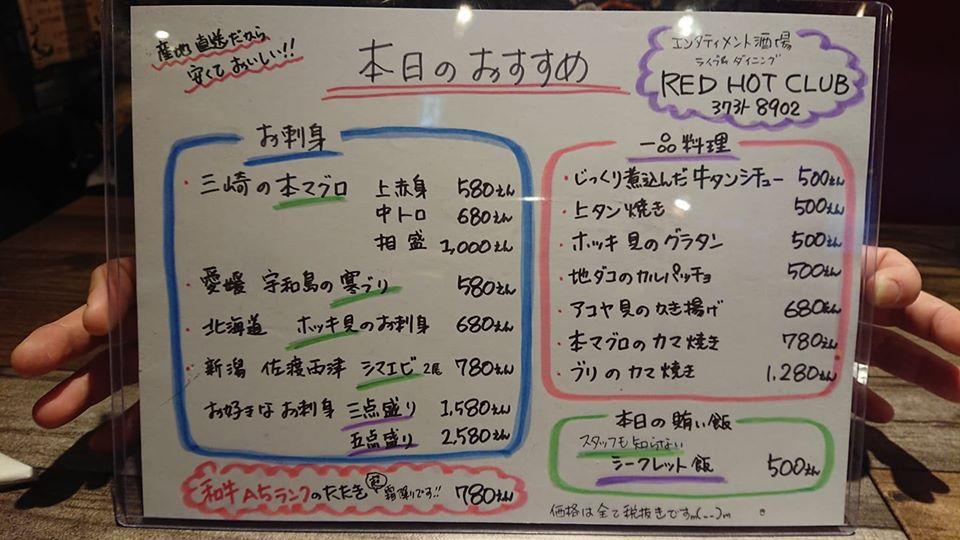 産地直送だから
安くておいしい!!
本日のおすすめ
エンタティメント酒場
ライブ& ダイニング
RED HOT CLUB
373-8902
お刺身
・三崎の本マグロ 上赤身 580えん
中トロ 680えん
相盛 1,000えん
・愛媛 宇和島の寒ブリ 580えん
・北海道 ホッキ貝のお刺身 680えん
・新潟 佐渡両津 シマエビ 2尾 780えん
お好きなお刺身 三点盛り 1,580えん
五点盛り 2,580えん
和牛A5ランクのたたき 超 霜降りです!! 780えん
一品料理
・じっくり煮込んだ牛タンシチュー 500えん
・上タン焼き 500えん
・ホッキ貝のグラタン 500えん
・地ダコのカルパッチョ 500えん
・アコヤ貝のかき揚げ 680えん
・本マグロのカマ焼き 780えん
・ブリのカマ焼き 1,280えん
本日の賄い飯
スタッフも知らない
シークレット飯 500えん
価格は全て税抜きですm(--)m